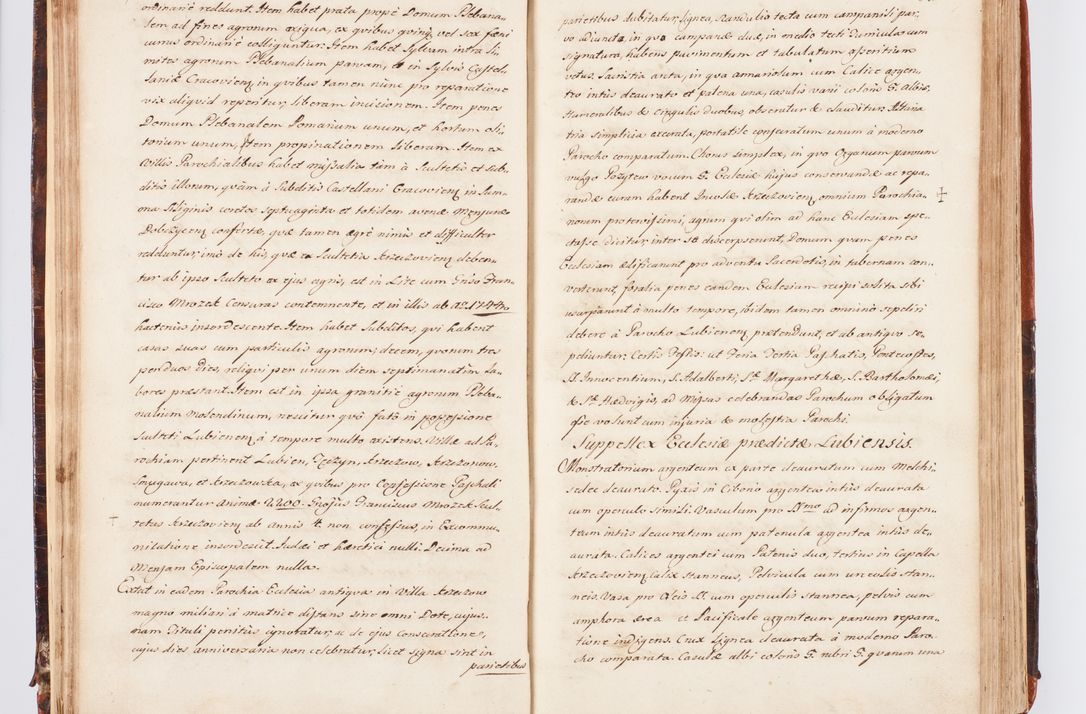 ordinariè reddunt. Item habet prata propè Domum Plebana-
lem ad fines agrorum exigua, ex quibus quinq vel sex fæni
currus ordinariè colliguntur. Item habet Sylvam intra li-
mites agrorum Plebanalium parvam, et in Sylvis Castel-
laniæ Cracoviens in quibus tamen nunc pro reparatione
vix aliquid reperitur, liberam incisionem. Item penes
Domum Plebanalem Pomarium unum, et hortum oli-
torium unum, Item propinationem liberam. Item ex
Villis Parochialibus habet missalia tàm à Scultetis et Sub-
ditis illorum, quàm à Subditis Castellani Cracoviens in Sum-
ma Siliginis coretos septuaginta et totidem avenæ Mensuræ
Dobczycens confertæ, quæ tamen ægrè nimis et difficulter
redduntur, imò de his, quæ ex Scultetia Krzeczoviens deben-
tur ab ipso Sculteto ex ejus agris, est in Lite cum Gñso Fran-
cisco Mrozek Censuras contemnente, et in illis ab aõ 1744to
hactenus insordescente. Item habet Subditos, qui habent
casas suas cum particulis agrorum, decem, quorum tres
per duos dies, reliqui per unum diem septimanatim la-
bores præstant. Item est in ipsa granitiè agrorum Pleba-
nalium Molendinum, nescitur quô fatô in possessione
Sculteti Lubienens à tempore multo existens. Villæ ad Pa-
rochiam pertinent Lubien, Tęczyn, Krzeczow, Krzeczonow,
et Krzeczowska, ex quibus pro Confessione Paschali
numerantur Animæ 2200. Gñosus Franciscus Mrozek Scul-
tetus Krzeczoviens ab annis 4. non confessus, in Excommu-
nicatione insordescit. Judæi et hæretici nulli. Decima ad
Mensam Episcopalem nulla.
Extat in eadem Parochia Ecclesia antiqua in Villa Krzeczow
magno miliari à matrice distans sine omni Dote, cujus-
nam Tituli penitùs ignoratur, ac de ejus consecratione,
cujus dies anniversaria non celebratur, licet signa sint in
parietibus
parietibus dubitatur, lignea, scandulis tecta cum campanili par-
vo adjuncto, in quo campanæ duæ, in medio tecti cumiculas cum
signatura, habens pavimentum et tabulatum asseritium
vetus. Sacristia arcta, in qua armariolum cum Calice argen-
teo intùs deaurato et patena una, casulis varii coloris 5. Albis,
Humeralibus & cingulis duobus, obseratur & clauditur. Altaria
tria simplicia execrata, portatile consecratum unum à moderno
Parocho comparatum. Chorus simplex, in quo Organum parvum
vulgo Pozytew vocum 5. Ecclesiæ hujus conservandæ ac repa-
randæ curam habent Incolæ Krzeczoviens omnium Parochia-
norum protervissimi, agrum qui olim ad hanc Ecclesiam spe-
ctasse dicitur inter se discerpserunt, Domum quam penes
Ecclesiam ædificarunt pro adventu Sacerdotis, in tabernam con-
verterunt, foralia penes eandem Ecclesiam recipi solita sibi
usurparunt à multo tempore, ibidem tamen omnino sepeliri
debere à Parocho Lubienens prætendunt, et ab antiquo se-
peliuntur. Certis Festis: ut Feria Tertia Paschatis, Pentecostes,
SS. Innocentium, S. Adalberti, Stæ Margarethæ, S. Bartholomæi,
& Stæ Hedvigis, ad Missas celebrandas Parochum obligatum
esse volunt cum injuria & molestia Parochi.
Suppellex Ecclesiæ prædictæ Lubiensis.
Monstratorium argenteum ex parte deauratum cum Melchi-
sedec deaurato. Pyxis in Ciborio argentea intùs deaurata
cum operculo simili. Vasculum pro SSmo ad infirmos argen-
teum intùs deauratum cum patenula argentea intùs de-
aurata. Calices argentei cum Patenis duo, tertius in Capella
Krzeczoviens. Calix stanneus, Pelvicula cum urceolis stan-
neis. Vasa pro Oleis SS. cum operculis stannea, pelvis cum
amphora ærea et Pacificale argenteum parvum repara-
tione indigens. Crux Lignea deaurata à moderno Paro-
cho comparata. Casulæ albi coloris 5. rubri 5. quarum una